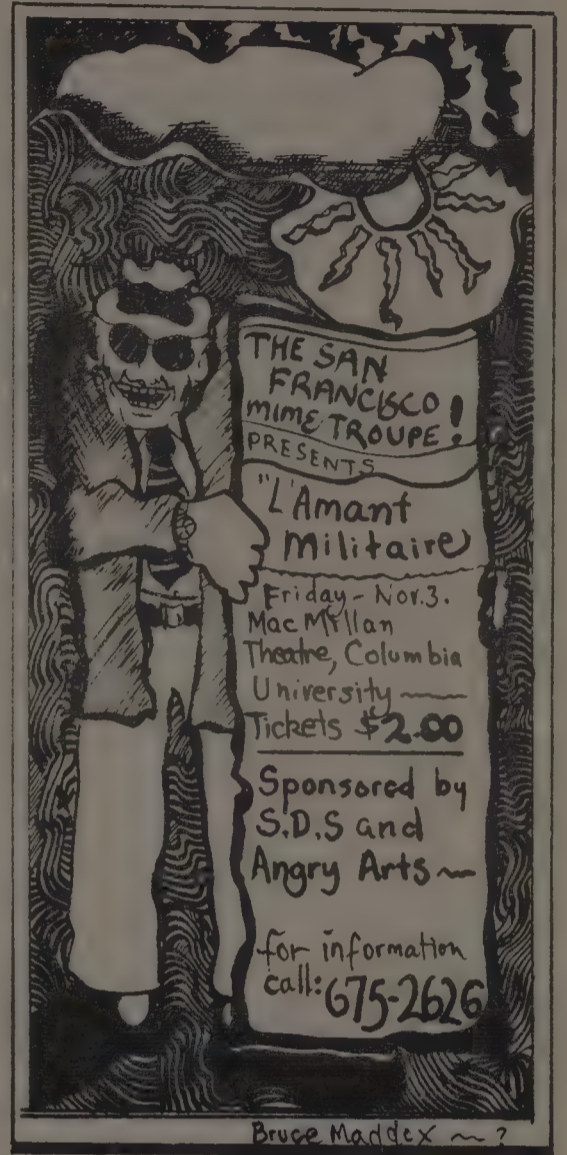 THE SAN
FRANCISCO
MIME TROUPE!
PRESENTS
"L'Amant
Militaire
Friday - Nov. 3.
MacMillan
Theatre, Columbia
University ~
Tickets $2.00
Sponsored by
S.D.S and
Angry Arts ~
for information
call: 675-2626
Bruce Maddex ~ ?